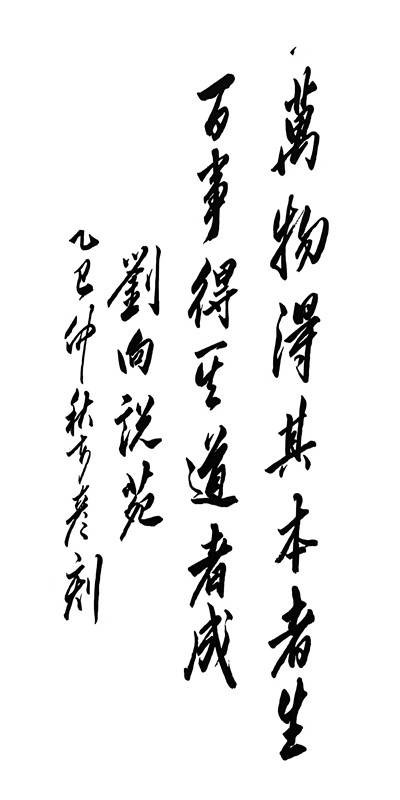 萬物得其本者生
百事得其道者成
劉向説苑
乙巳仲秋彦刻